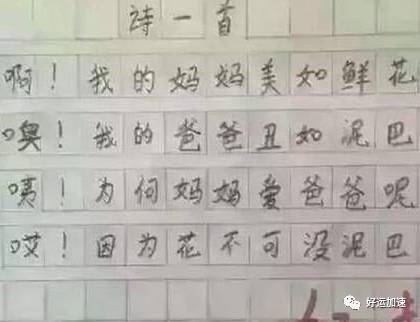 诗一首
啊！我的妈妈美如鲜花
噢！我的爸爸丑如泥巴
咦！为何妈妈爱爸爸呢
哎！因为花不可没泥巴
好运加速